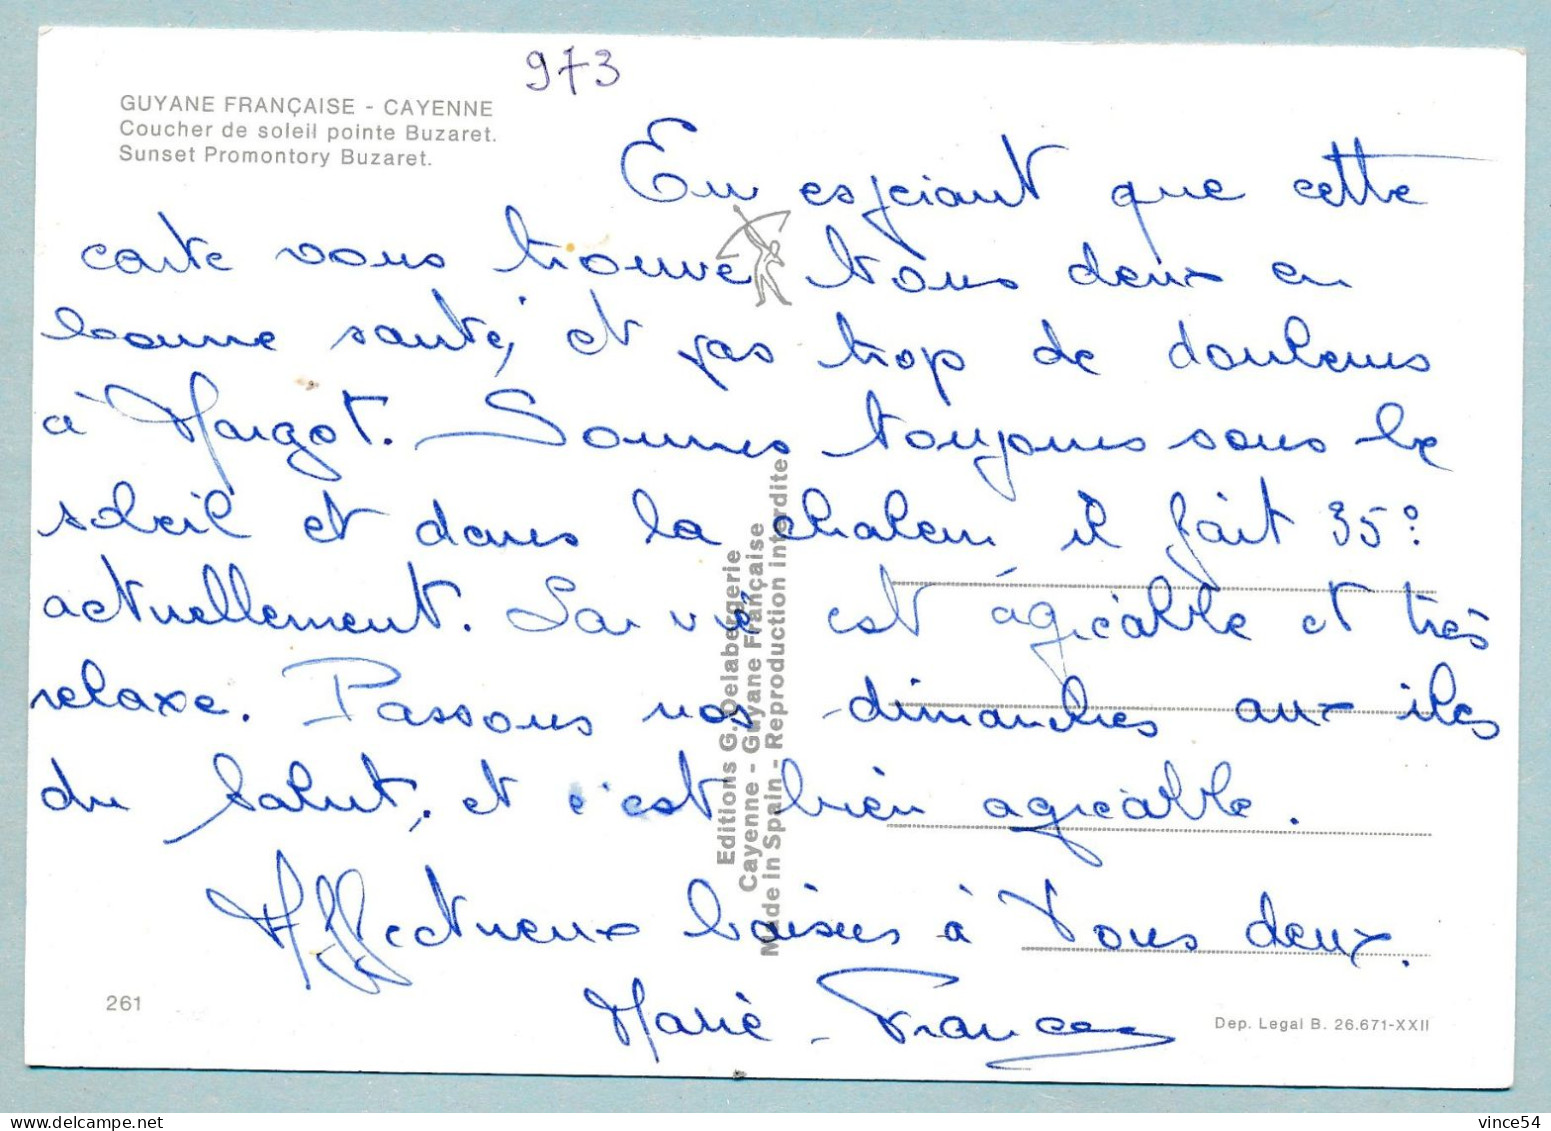 973
GUYANE FRANÇAISE - CAYENNE
Coucher de soleil pointe Buzaret.
Sunset Promontory Buzaret.
En espérant que cette
carte vous trouve tous deux en
bonne santé, et pas trop de douleurs
à Margot. Sommes toujours sous le
soleil et dans la chaleur il fait 35°
actuellement. La vie est agréable et très
relaxe. Passons nos dimanches aux iles
du Salut, et c'est bien agréable.
Affectueux baisers à Vous deux.
Marie-France
Editions G. Delabergerie
Cayenne - Guyane Française
Made in Spain - Reproduction interdite
261
Dep. Legal B. 26.671-XXII
delcampe.net
vince54